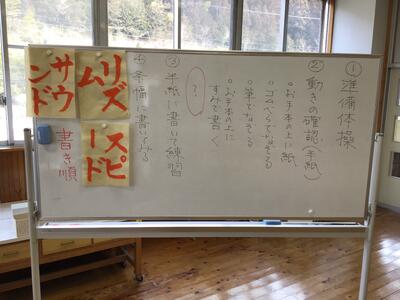 ①準備体操
②動きの確認(手紙)
◦お手本の上に紙
◦ゴムべらでなぞる
◦筆でなぞる
◦お手本の上に
すみで書く
?
③半紙に書いて練習
④条幅に書いてみる
リズム
サウンド
スピード
書き順